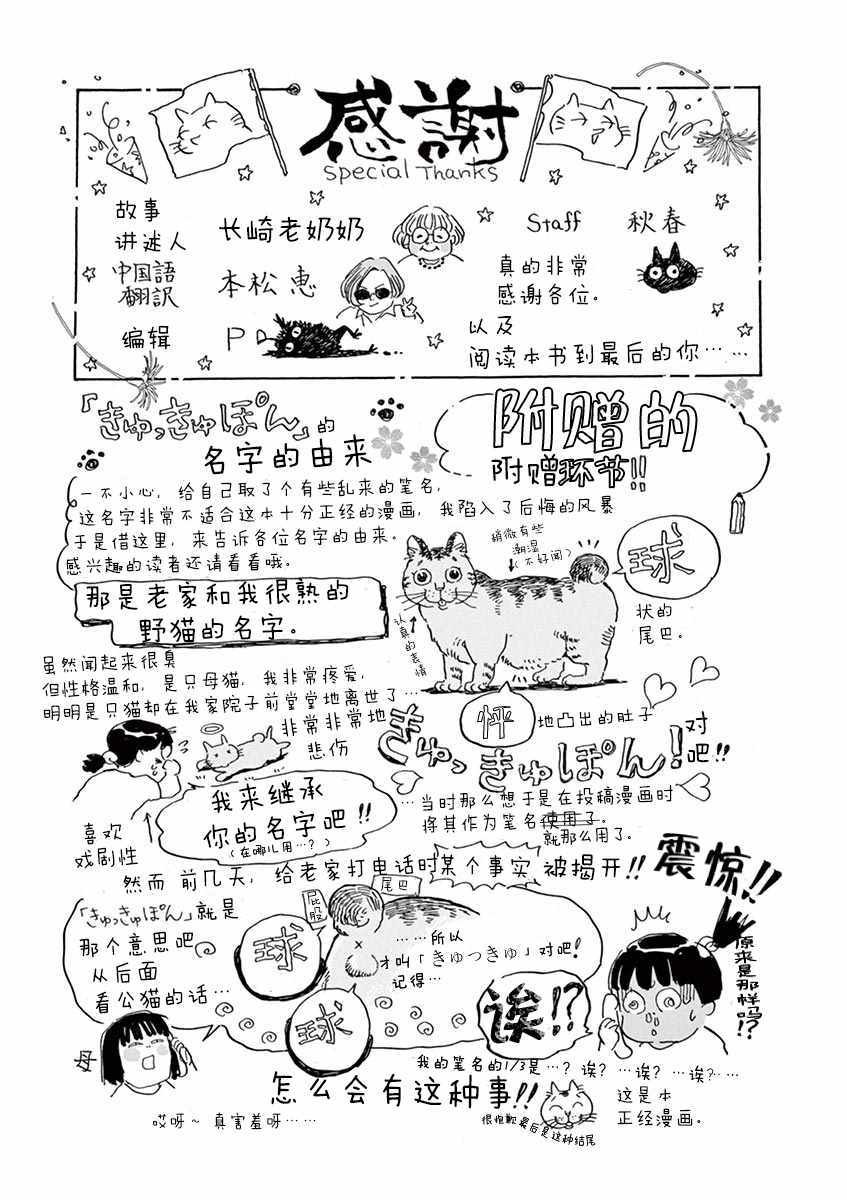 感謝
Special Thanks
故事
讲述人
长崎老奶奶
中国語
翻訳
本松恵
编辑
P
Staff
秋春
真的非常
感谢各位。
以及
阅读本书到最后的你……
「きゅっきゅぽん」的
名字的由来
附赠的
附赠环节!!
一不小心，给自己取了个有些乱来的笔名，
这名字非常不适合这本十分正经的漫画，我陷入了后悔的风暴
于是借这里，来告诉各位名字的由来。
感兴趣的读者还请看看哦。
那是老家和我很熟的
野猫的名字。
稍微有些
潮湿
（不好闻）
球
状的
尾巴。
认真的表情
虽然闻起来很臭
但性格温和，是只母猫，我非常疼爱，
明明是只猫却在我家院子前堂堂地离世了…
非常非常地
悲伤
怦
地凸出的肚子
きゅっきゅぽん!
对
吧!!
我来继承
你的名字吧!!
（在哪儿用…？）
喜欢
戏剧性
…当时那么想于是在投稿漫画时
将其作为笔名使用了。
就那么用了。
然而 前几天，给老家打电话时某个事实 被揭开!!
震惊!!
「きゅっきゅぽん」就是
那个意思吧
从后面
看公猫的话…
屁股
尾巴
球
球
……所以
才叫「きゅっきゅ」对吧!
记得…
诶!?
原来是那样吗!?
母
我的笔名的1/3是…？诶？…诶？…诶？…
怎么会有这种事!!
哎呀～ 真害羞呀……
很抱歉最后是这种结尾
这是本
正经漫画。